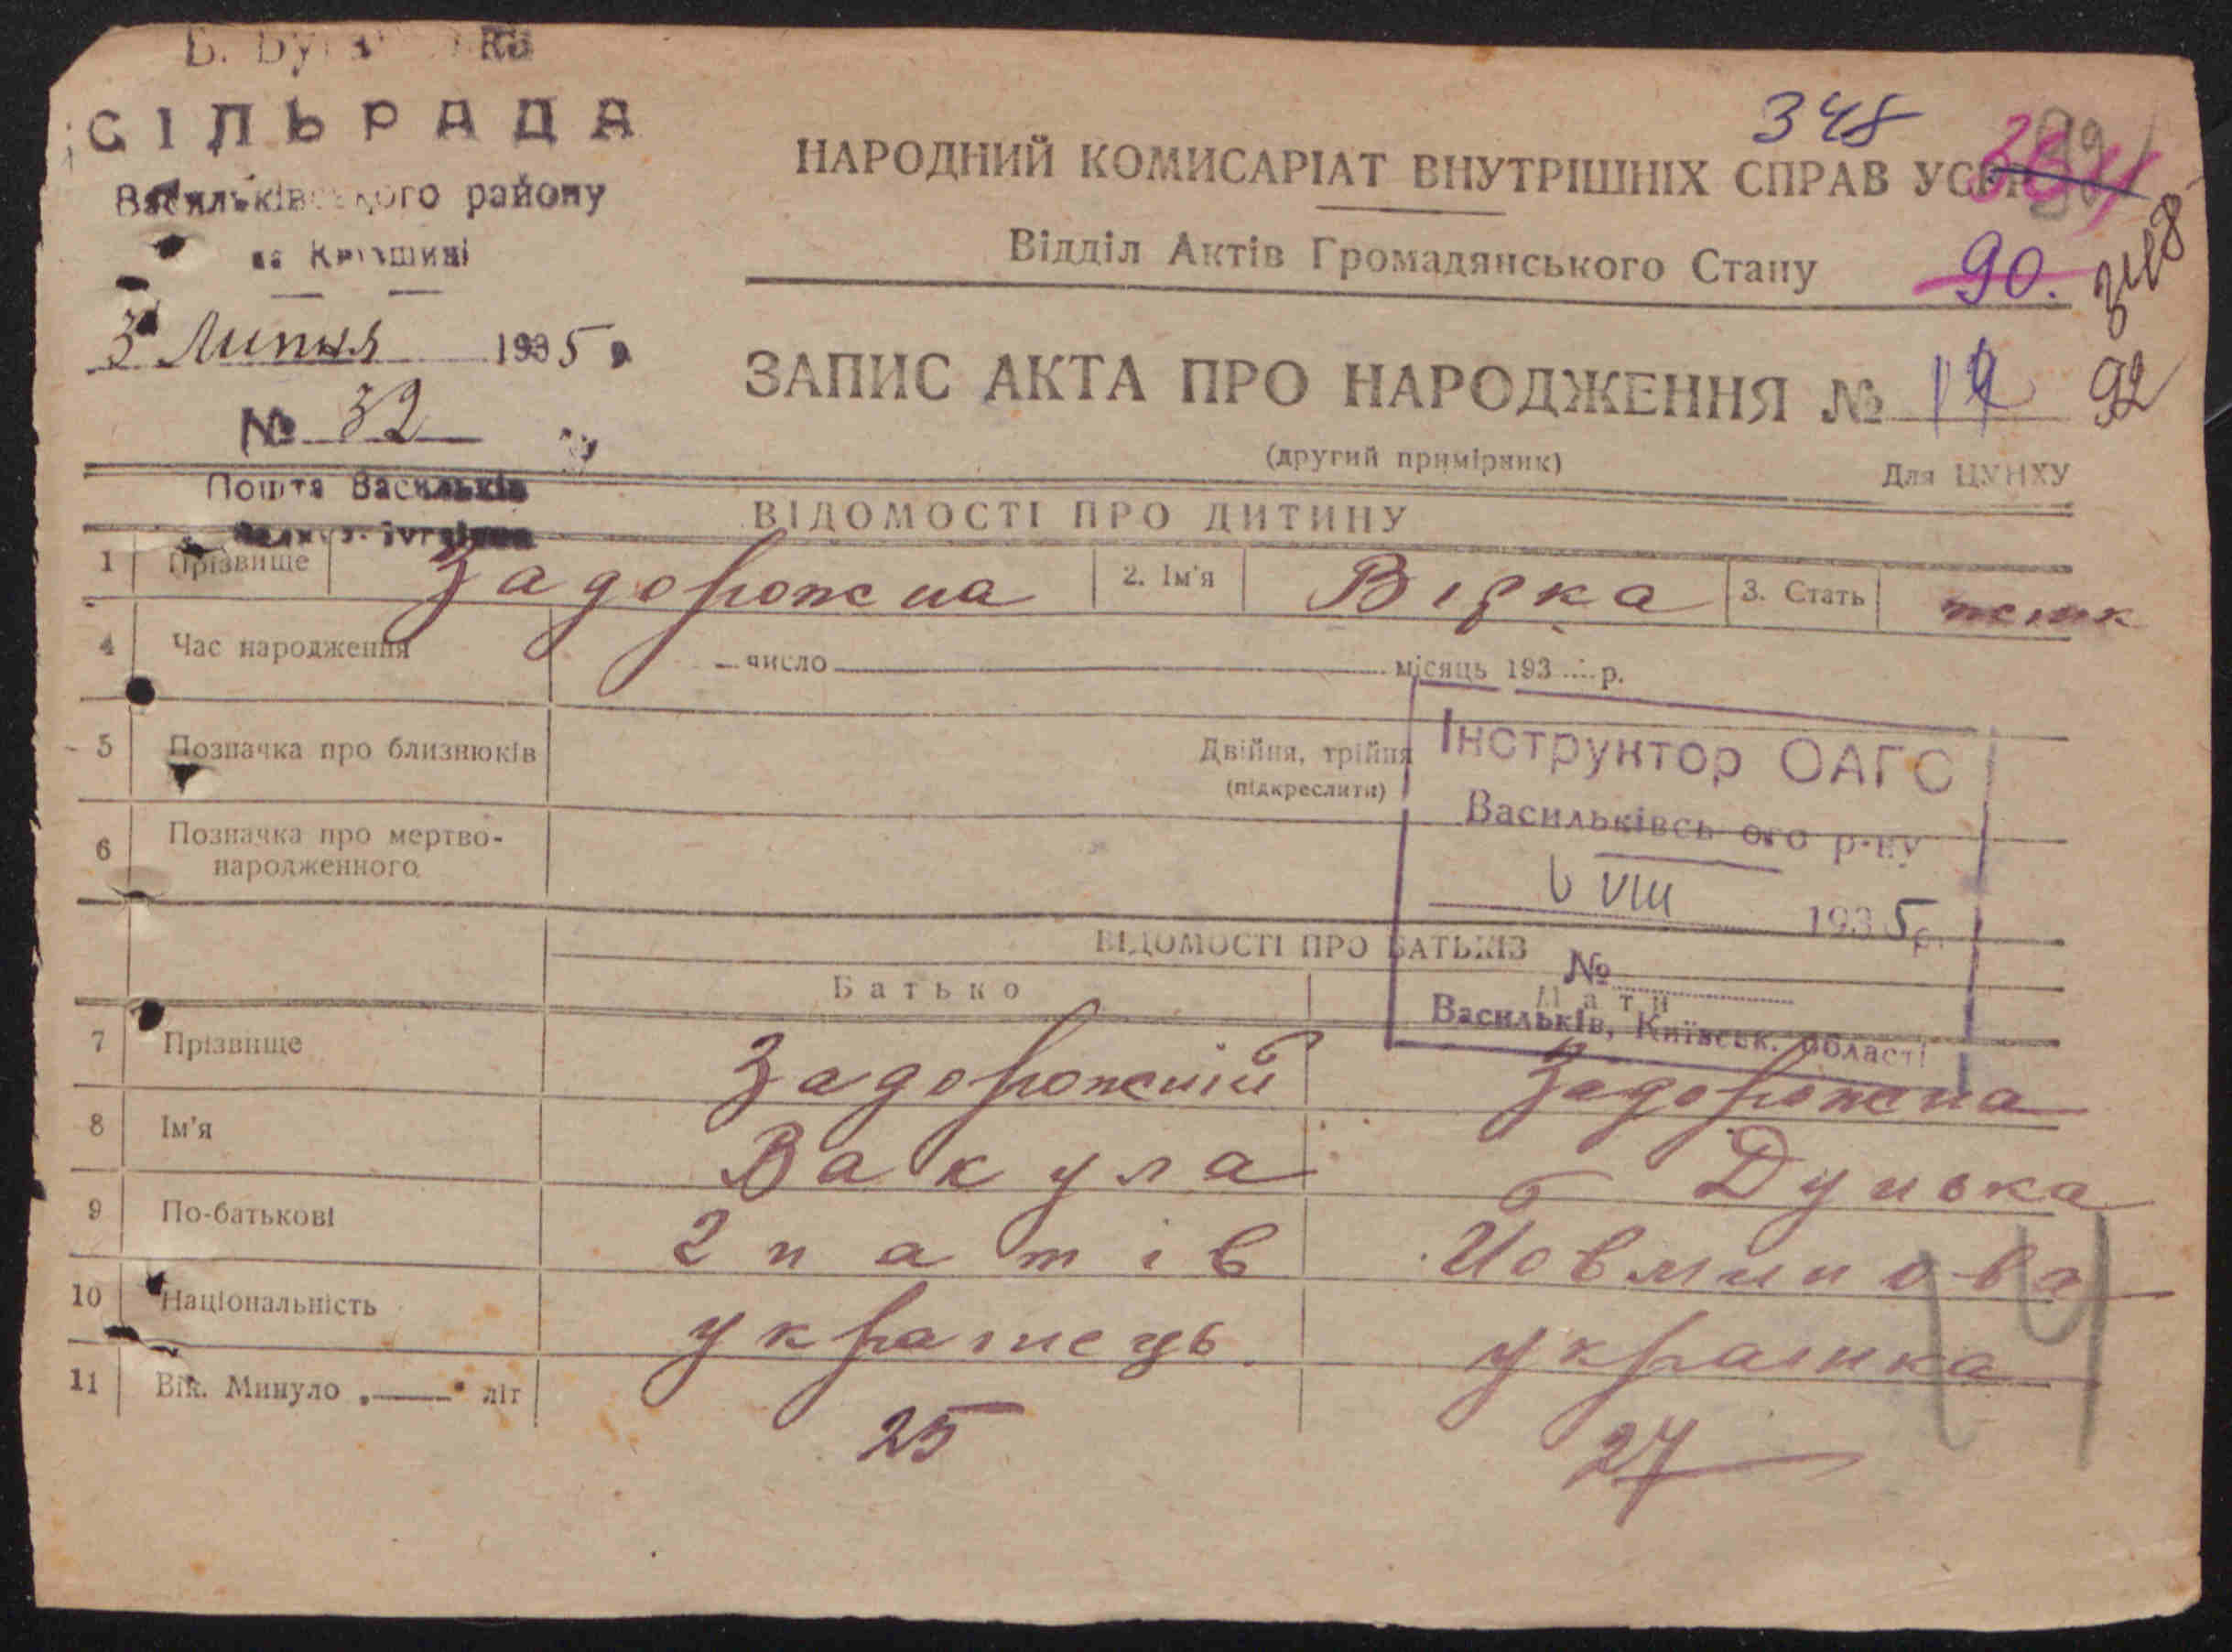 СІЛЬРАДА
Васильківського району
на Київщині
3 Липня 1935 р.
№ 32
Пошта Васильків
348
НАРОДНИЙ КОМИСАРІАТ ВНУТРІШНІХ СПРАВ УСРР
Відділ Актів Громадянського Стану
90.
348
ЗАПИС АКТА ПРО НАРОДЖЕННЯ №
92
(другий примірник)
Для ЦУНХУ
ВІДОМОСТІ ПРО ДИТИНУ
1 Прізвище Задорожна 2. Ім'я Вірка 3. Стать жінк
4 Час народження число місяць 193 р.
5 Позначка про близнюків Двійня, трійня
(підкреслити)
6 Позначка про мертво-
народженного
Інструктор ОАГС
Васильківсь ого р-ну
6 VIII 1935 р.
№
Васильків, Київськ. області
ВІДОМОСТІ ПРО БАТЬКІВ
Батько Мати
7 Прізвище Задорожній Задорожна
8 Ім'я Вакула Дунька
9 По-батькові Ігнатів
10 Національність украінець украінка
11 Вік. Минуло „—" літ 25 27